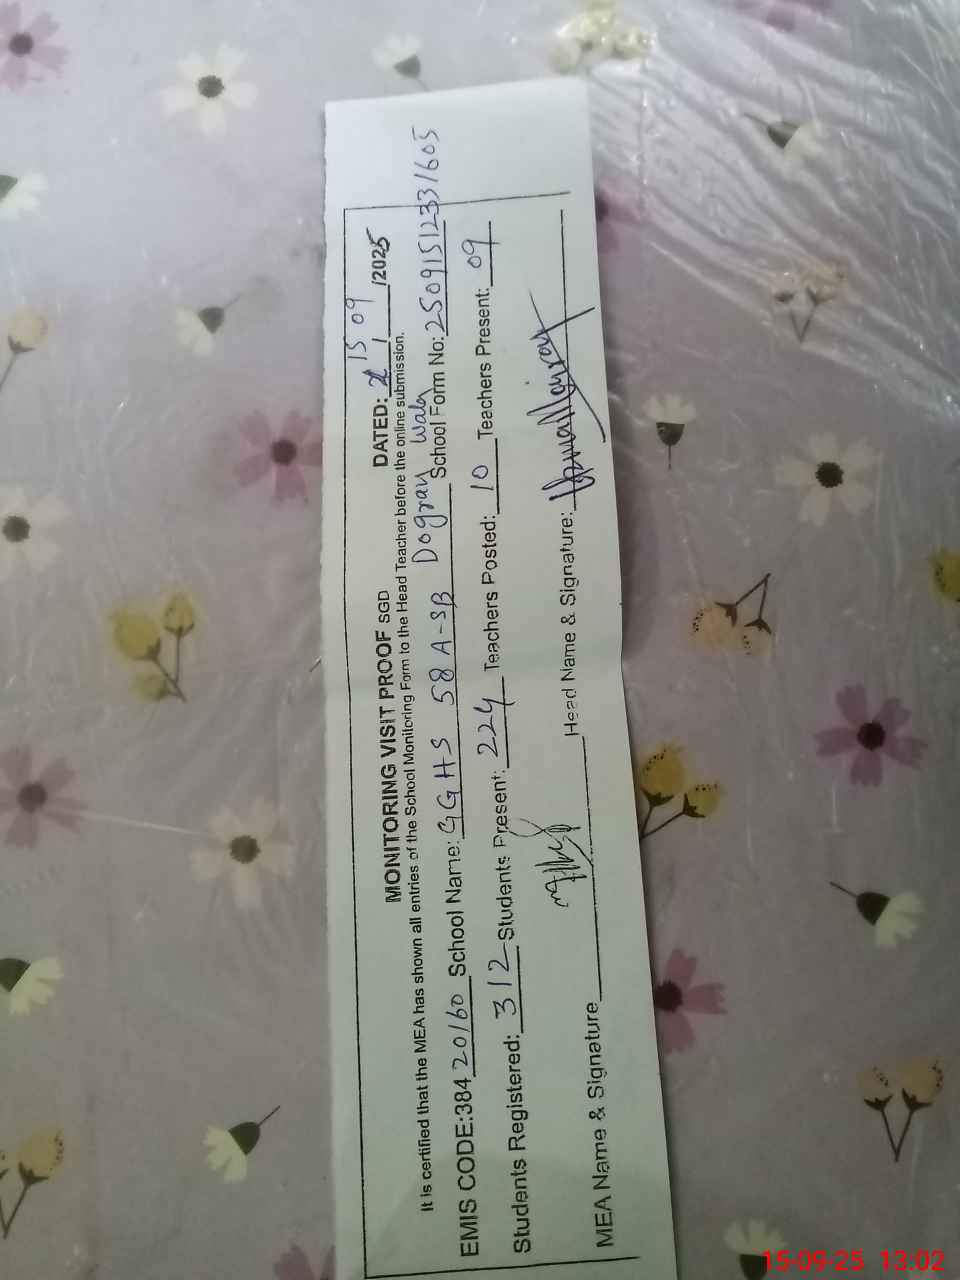 MONITORING VISIT PROOF SGD DATED: 15/09/2025
It is certified that the MEA has shown all entries of the School Monitoring Form to the Head Teacher before the online submission.
EMIS CODE:384 20160 School Name: GGHS 58 A-SB Dogray Wala School Form No: 25091512331605
Students Registered: 312 Students Present: 224 Teachers Posted: 10 Teachers Present: 09
MEA Name & Signature Head Name & Signature:
15-09-25 13:02